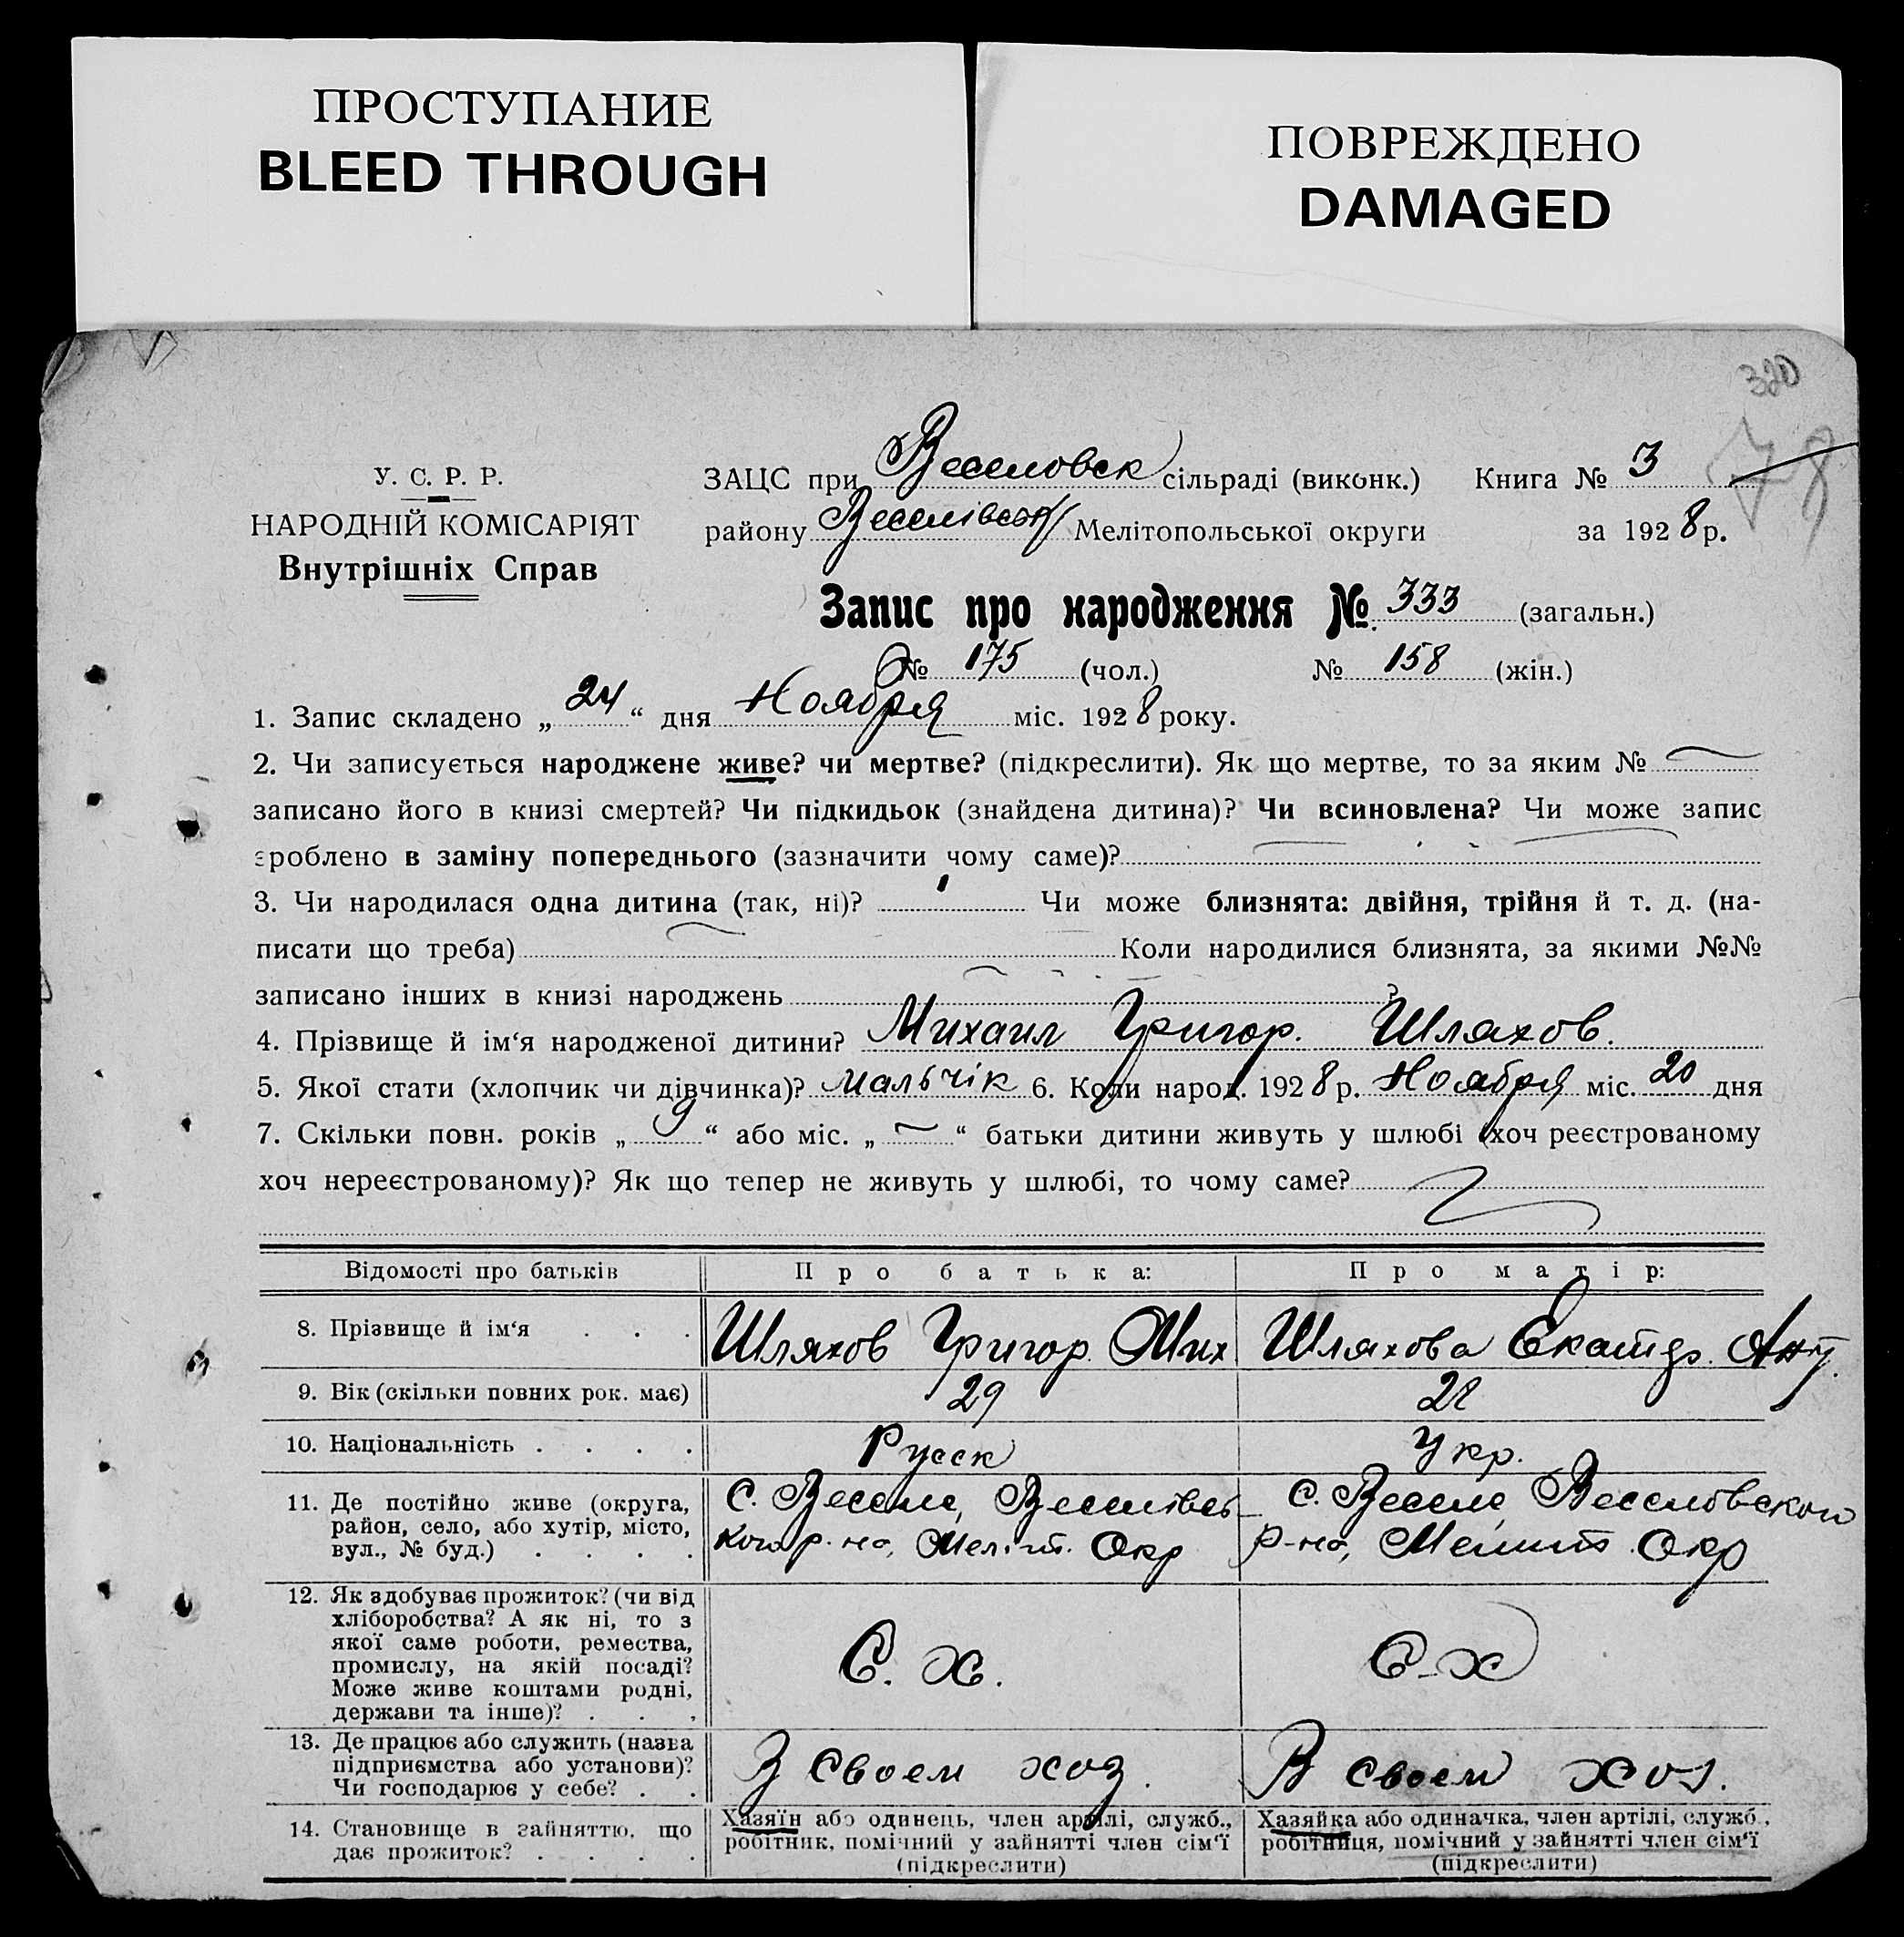 ПРОСТУПАНИЕ
BLEED THROUGH
ПОВРЕЖДЕНО
DAMAGED
320
78
У. С. Р. Р.
НАРОДНІЙ КОМІСАРІЯТ
Внутрішніх Справ
ЗАЦС при Веселовск сільраді (виконк.) Книга № 3
району Веселівськ Мелітопольської округи за 1928 р.
Запис про народження № 333 (загальн.)
№ 175 (чол.) № 158 (жін.)
1. Запис складено „ 24 “ дня Ноября міс. 1928 року.
2. Чи записується народжене живе? чи мертве? (підкреслити). Як що мертве, то за яким №
записано його в книзі смертей? Чи підкидьок (знайдена дитина)? Чи всиновлена? Чи може запис
зроблено в заміну попереднього (зазначити чому саме)?
3. Чи народилася одна дитина (так, ні)? Чи може близнята: двійня, трійня й т. д. (на-
писати що треба) Коли народилися близнята, за якими №№
записано інших в книзі народжень ?
4. Прізвище й ім‘я народженої дитини? Михаил Григор. Шляхов.
5. Якої стати (хлопчик чи дівчинка)? мальчік 6. Коли народ. 1928 р. Ноября міс. 20 дня
7. Скільки повн. років „ 9 “ або міс. „ — “ батьки дитини живуть у шлюбі (хоч реєстрованому
хоч нереєстрованому)? Як що тепер не живуть у шлюбі, то чому саме?
Відомості про батьків Про батька: Про матір:
8. Прізвище й ім‘я . . . Шляхов Григор. Мих Шляхова Екатер. Ант.
9. Вік (скільки повних рок. має) 29 28
10. Національність . . . . Русск Укр.
11. Де постійно живе (округа,
район, село, або хутір, місто,
вул., № буд.) . . . .
С. Веселе, Веселівсь-
кого р-на, Меліт. Окр
С. Веселе, Веселовского
р-на, Мелит. Окр
12. Як здобуває прожиток? (чи від
хліборобства? А як ні, то з
якої саме роботи, ремества,
промислу, на якій посаді?
Може живе коштами родні,
держави та інше)? . . .
С. Х.
С-Х
13. Де працює або служить (назва
підприємства або установи)?
Чи господарює у себе? . .
В своем хоз.
В своем хоз.
14. Становище в зайняттю, що
дає прожиток? . . . .
Хазяїн або одинець, член артілі, служб.,
робітник, помічний у зайнятті член сім‘ї
(підкреслити)
Хазяйка або одиначка, член артілі, служб.,
робітниця, помічний у зайнятті член сім‘ї
(підкреслити)